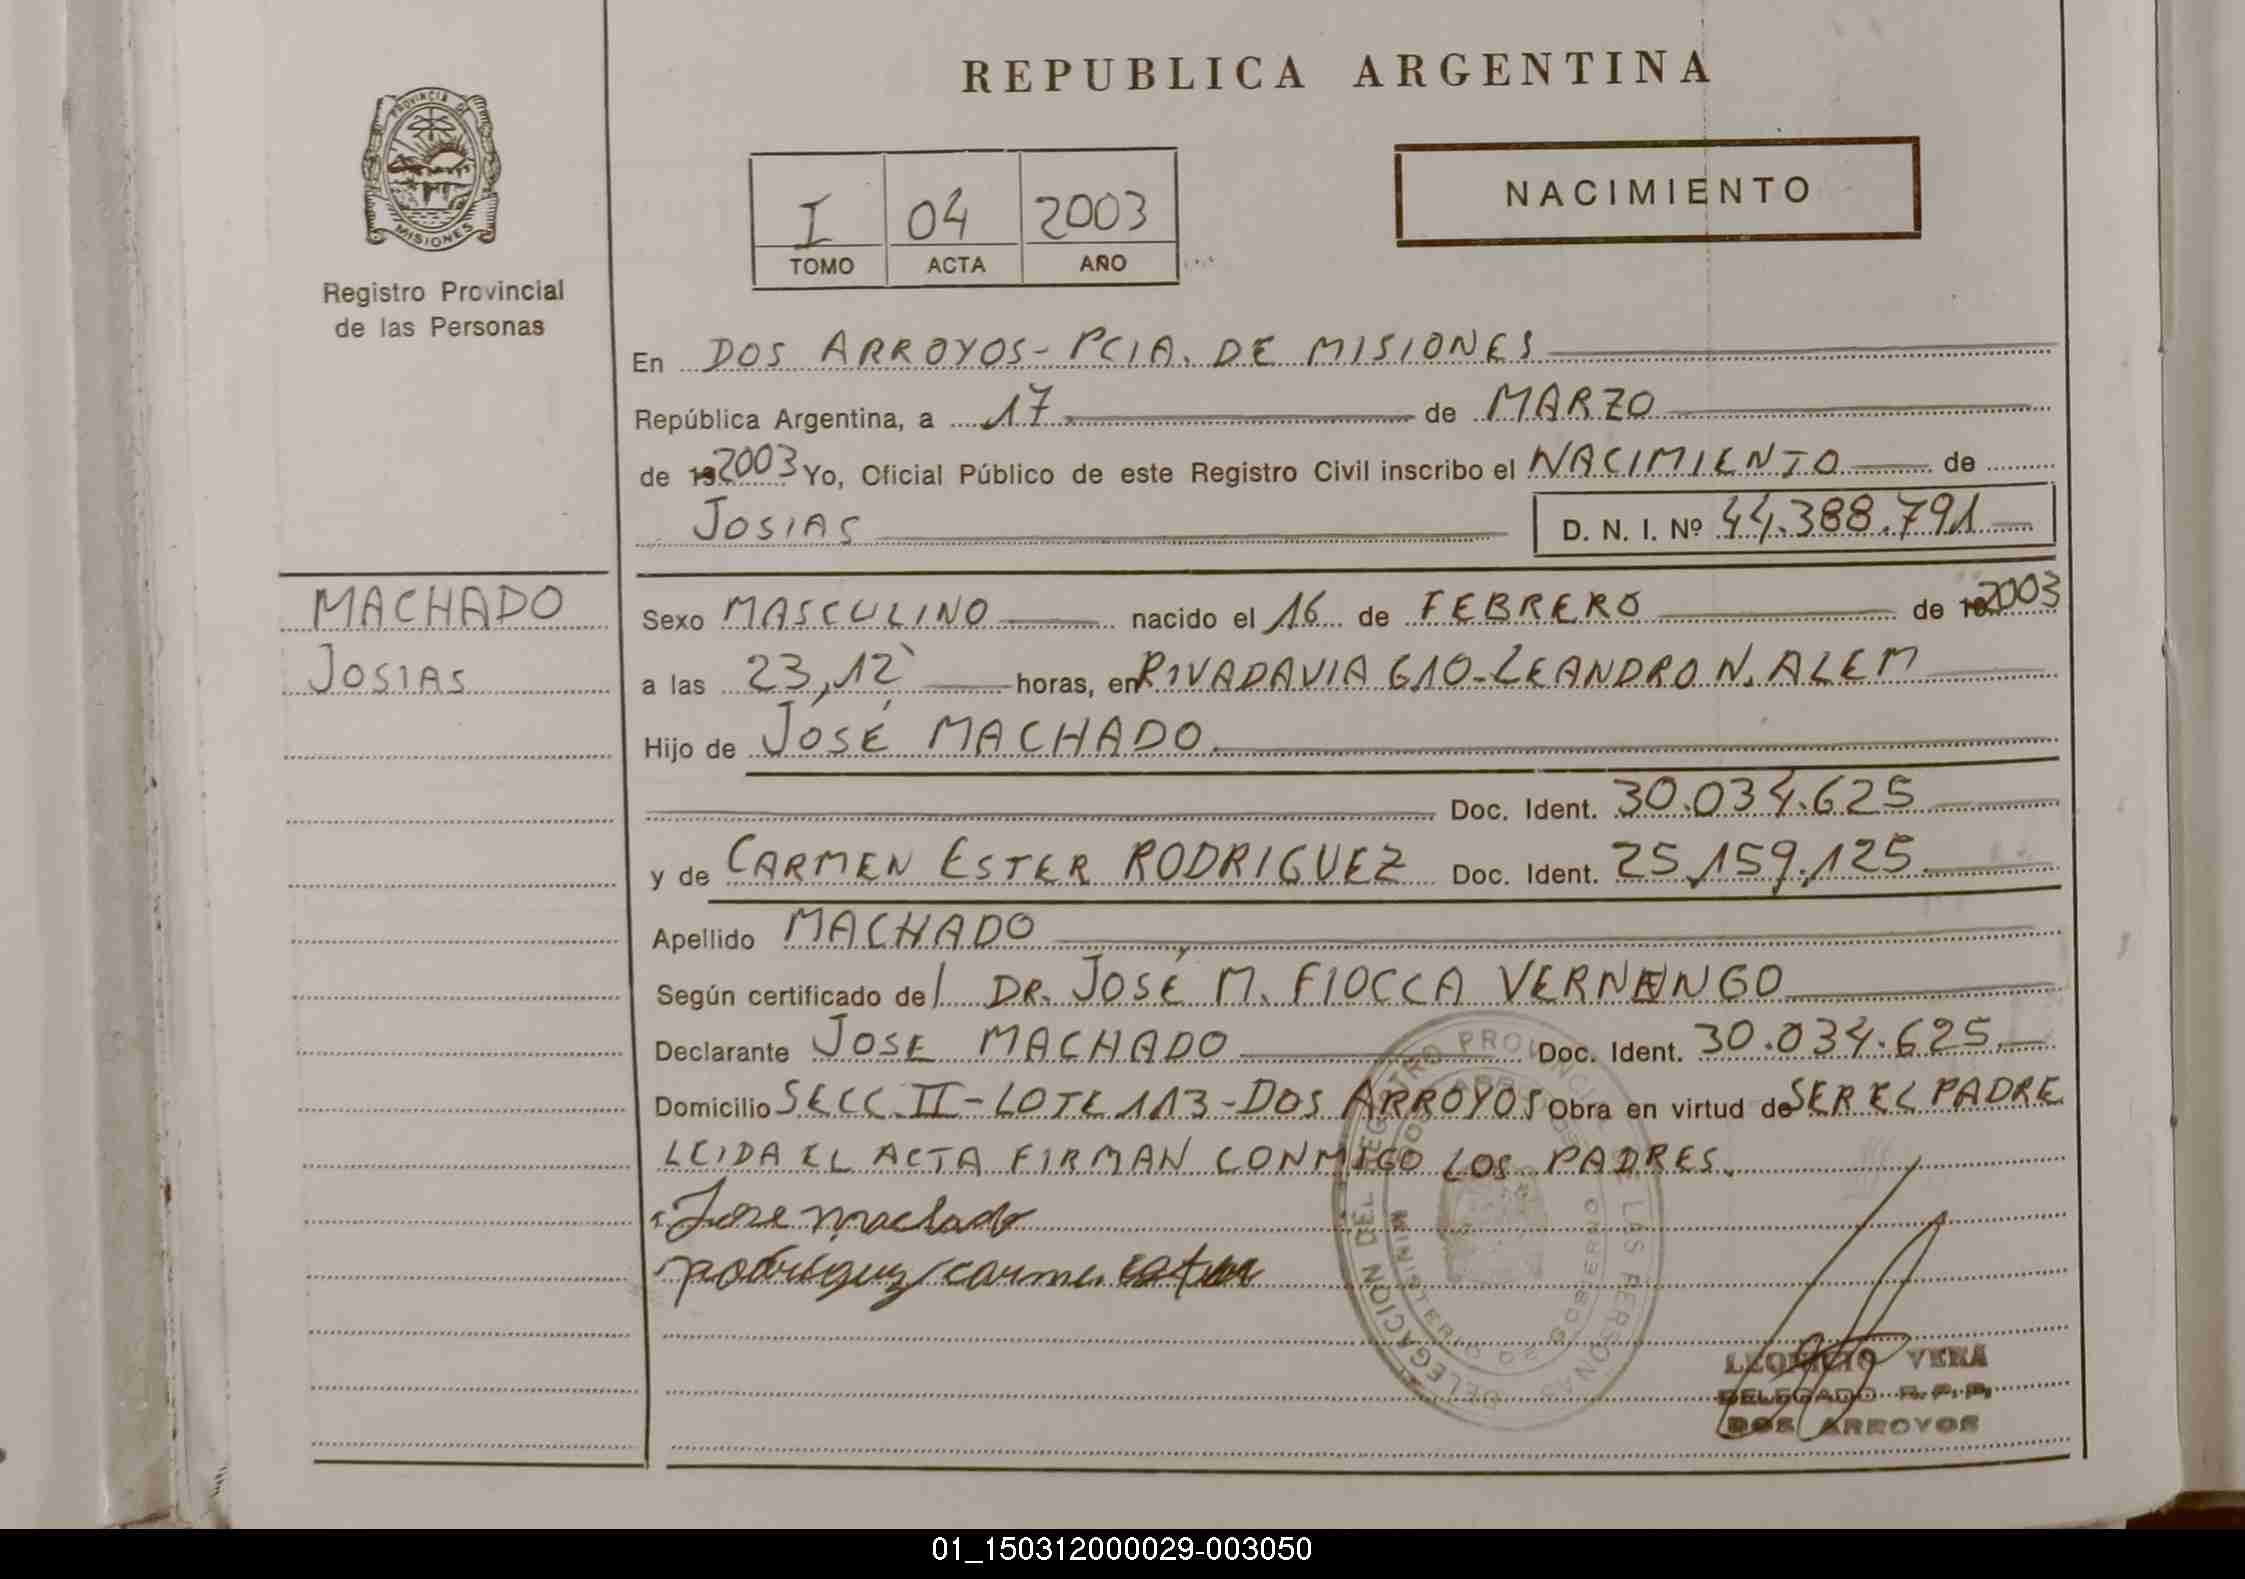 REPUBLICA ARGENTINA
PROVINCIA DE
MISIONES
Registro Provincial
de las Personas
I 04 2003
TOMO ACTA AÑO
NACIMIENTO
En DOS ARROYOS - PCIA. DE MISIONES
República Argentina, a 17 de MARZO
de 19 2003 Yo, Oficial Público de este Registro Civil inscribo el NACIMIENTO de
JOSIAS D. N. I. Nº 44.388.791
MACHADO
JOSIAS
Sexo MASCULINO nacido el 16 de FEBRERO de 19 2003
a las 23,12 horas, en RIVADAVIA 610 - LEANDRO N. ALEM
Hijo de JOSÉ MACHADO
Doc. Ident. 30.034.625
y de CARMEN ESTER RODRIGUEZ Doc. Ident. 25.159.125
Apellido MACHADO
Según certificado del DR. JOSÉ M. FIOCCA VERNENGO
Declarante JOSE MACHADO Doc. Ident. 30.034.625
Domicilio SECC. II - LOTE 113 - DOS ARROYOS Obra en virtud de SER EL PADRE
LEIDA EL ACTA FIRMAN CONMIGO LOS PADRES.
Jose machado
rodriguez carmen ester
DELEGACION DEL REGISTRO PROVINCIAL DE LAS PERSONAS
DOS ARROYOS
MINISTERIO DE GOBIERNO
LEONICIO VERA
DELEGADO R. P. P.
DOS ARROYOS
01_150312000029-003050